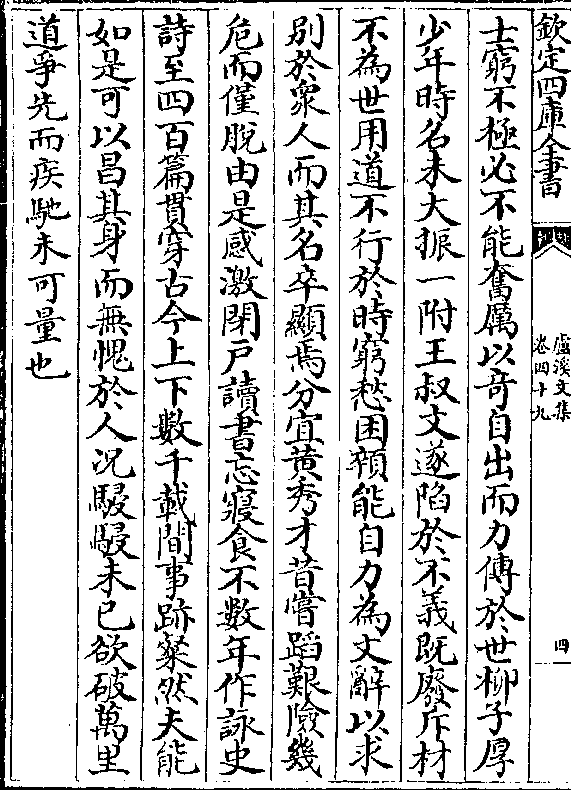 欽定四庫全書
盧溪文集
卷四十九
四
士窮不極必不能奮厲以竒自出而力傳於世栁子厚
少年時名未大振一附王叔文遂陷於不義既廢斥材
不為世用道不行於時窮愁困頓能自力為文辭以求
别於衆人而其名卒顯焉分宜黄秀才昔嘗蹈艱險幾
危而僅脱由是感激閉戸讀書忘寢食不數年作詠史
詩至四百篇貫穿古今上下數千載間事跡粲然夫能
如是可以昌其身而無愧於人况駸駸未已欲破萬里
道爭先而疾馳未可量也